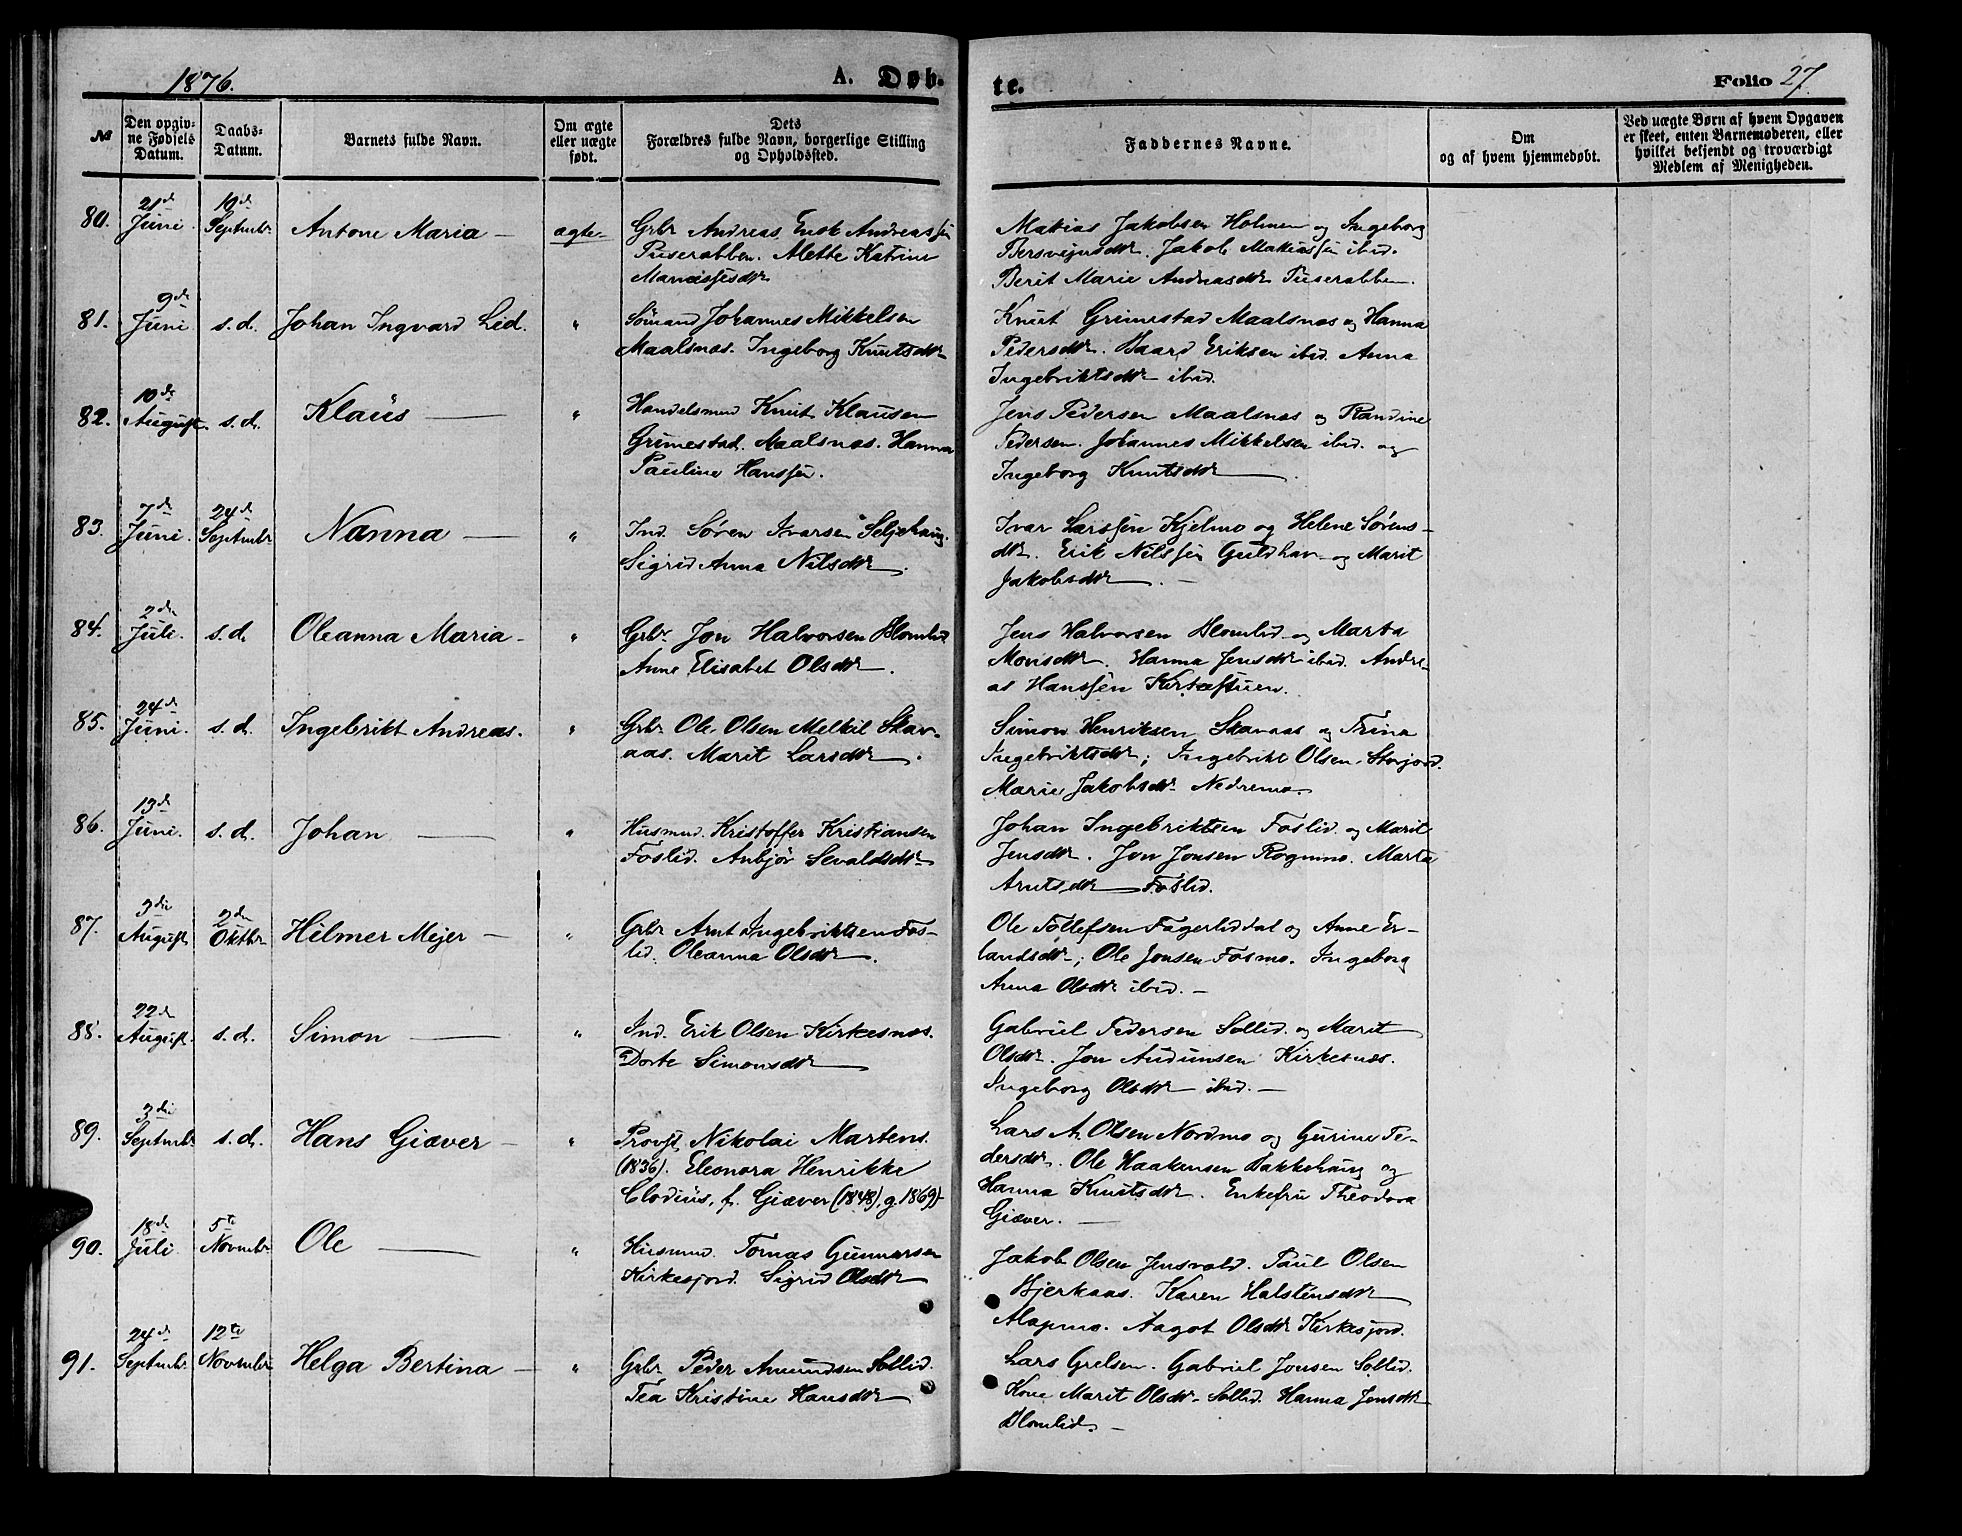 1876.
A. Døb-
te.
Folio 27.
№
Den opgiv-
ne Fødsels
Datum.
Daabs-
Datum.
Barnets fulde Navn.
Om ægte
eller uægte
født.
Dets
Forældres fulde Navn, borgerlige Stilling
og Opholdssted.
Faddernes Navne.
Om
og af hvem hjemmedøbt.
Ved uægte Børn af hvem Opgaven
er skeet, enten Barnemoderen, eller
hvilket bekjendt og troværdigt
Medlem af Menigheden.
80. 21de Juni. 10de Septmbr. Antone Maria — ægte-
Grbr. Andreas Enok Andreassen
Puserabben. Mette Katrine
Manassesdtr
Matias Jakobsen Holmen og Ingeborg
Bersvensdtr. Jakob Matiassen ibid.
Berit Marie Andreasdtr Puserabben.
81. 9de Juni s.d. Johan Ingvard Lid. "
Sømand Johannes Mikkelsen
Maalsnæs. Ingeborg Knutsdtr
Knut Grimestad Maalsnæs og Hanna
Pedersdtr. Baard Eriksen ibid. Anna
Ingebriktsdtr ibid.
82. 10de August. s.d. Klaus — "
Handelsmnd Knut Klausen
Grimestad. Maalsnæs. Hanna
Pauline Hanssen.
Jens Pedersen Maalsnæs og Randine
Pedersen. Johannes Mikkelsen ibid. og
Ingeborg Knutsdtr
83. 7de Juni. 24de Septmbr Nanna — "
Ind. Søren Ivarsen Seljehaug.
Sigrid Anna Nilsdtr.
Ivar Larssen Kjelmo og Helene Sørens-
dtr. Erik Nilssen Guldhav og Marit
Jakobsdtr. —
84. 2den Juli. s.d. Oleanna Maria - "
Grbr. Jon Halvorsen Blomlid
Anne Elisabet Olsdtr.
Jens Halvorsen Blomlid og Marta
Monsdtr. Hanna Jensdtr ibid. Andre-
as Hanssen
85. 24de Juni. s.d. Ingebrikt Andreas. "
Grbr Ole Olsen Melkil Skav-
aas. Marit Larsdtr.
Simon Henriksen Skavaas og Trina
Ingebriktsdtr; Ingebrikt Olsen Storjord.
Marie Jakobsdtr Nedremo.
86. 13de Juni. s.d. Johan — "
Husmnd. Kristoffer Kristiansen
Foslid. Anbjør Sevaldsdtr
Johan Ingebriktsen Foslid og Marit
Jensdtr. Jon Jonsen Rognmo. Marta
Arntsdtr Foslid.
87. 3die August 2den Oktbr Hilmer Mejer — "
Grbr Arnt Ingebriktsen Fos-
lid. Oleanna Olsdtr.
Ole Tollefsen Fagerliddal og Anne Er-
landsdtr; Ole Jonsen Fosmo. Ingeborg
Anna Olsdtr ibid. —
88. 22de August. s.d. Simon — "
Ind. Erik Olsen Kirkesnæs.
Dorte Simonsdtr
Gabriel Pedersen Sollid og Marit
Olsdtr. Jon Audunsen Kirkesnæs.
Ingeborg Olsdtr ibid. —
89. 3die Septmbr s.d. Hans Giæver — "
Provst Nikolai Martens.
(1836). Eleonora Henrikke
Clodius, f. Giæver (1848), g. 1869)
Lars A. Olsen Nordmo og Gurine Pe-
dersdtr. Ole Haakensen Bakkehaug og
Hanna Knutsdtr. Enkefru Theodora
Giæver. —
90. 18de Juli. 5te Novmbr. Ole — "
Husmnd. Tomas Gunnarsen
Kirkesjord. Sigrid Olsdtr
Jakob Olsen Jensvold. Paul Olsen
Bjerkaas. Karen Halstensdtr
Alapmo. Aagot Olsdtr Kirkesjord.
91. 24de Septmbr. 12te Novmbr. Helga Bertina — "
Grbr Peder Amundsen Sollid.
Tea Kristine Hansdtr
Lars Grelsen. Gabriel Jonsen Sollid.
Kone Marit Olsdtr Sollid. Hanna Jensdtr
Blomlid.